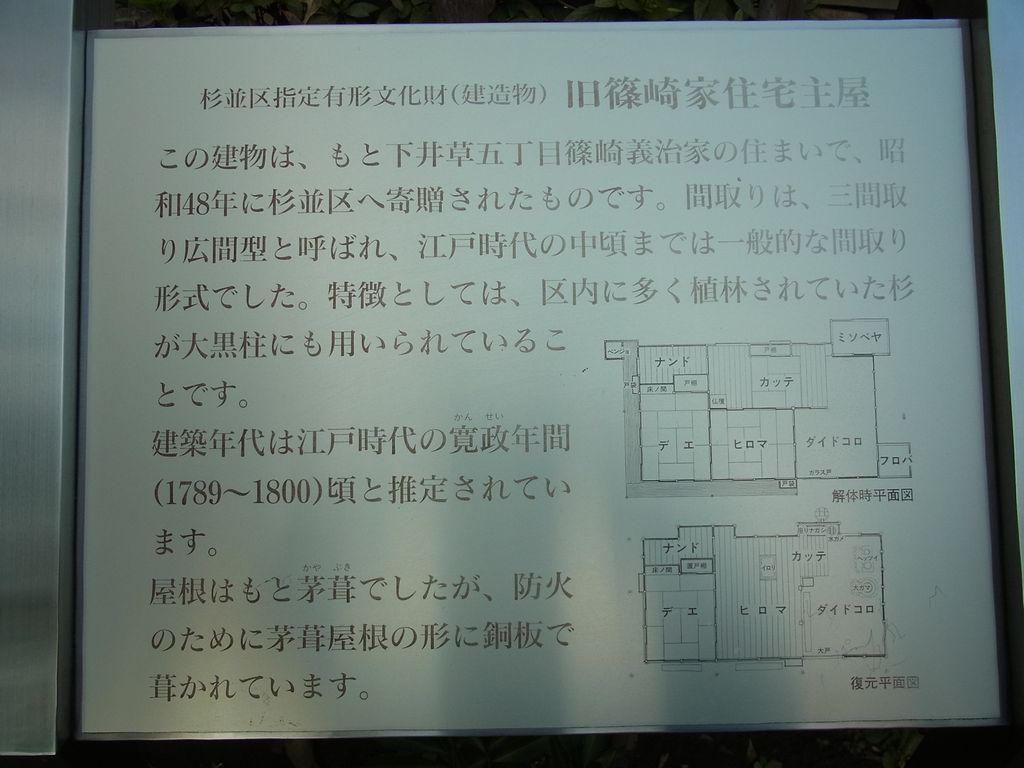 杉並区指定有形文化財(建造物) 旧篠崎家住宅主屋
この建物は、もと下井草五丁目篠崎義治家の住まいで、昭
和48年に杉並区へ寄贈されたものです。間取りは、三間取
り広間型と呼ばれ、江戸時代の中頃までは一般的な間取り
形式でした。特徴としては、区内に多く植林されていた杉
が大黒柱にも用いられているこ
とです。
かん せい
建築年代は江戸時代の寛政年間
(1789～1800)頃と推定されてい
ます。
かや ぶき
屋根はもと茅葺でしたが、防火
のために茅葺屋根の形に銅板で
葺かれています。
ミソベヤ
ベンジョ
ナンド
戸棚
カッテ
戸袋
床ノ間
戸棚
仏壇
デエ
ヒロマ
ダイドコロ
フロバ
ガラス戸
戸袋
解体時平面図
ナンド
カッテ
水ガメ
床ノ間
置戸棚
イロリ
ヘッツイ
大ガマ
デエ
ヒロマ
ダイドコロ
大戸
復元平面図